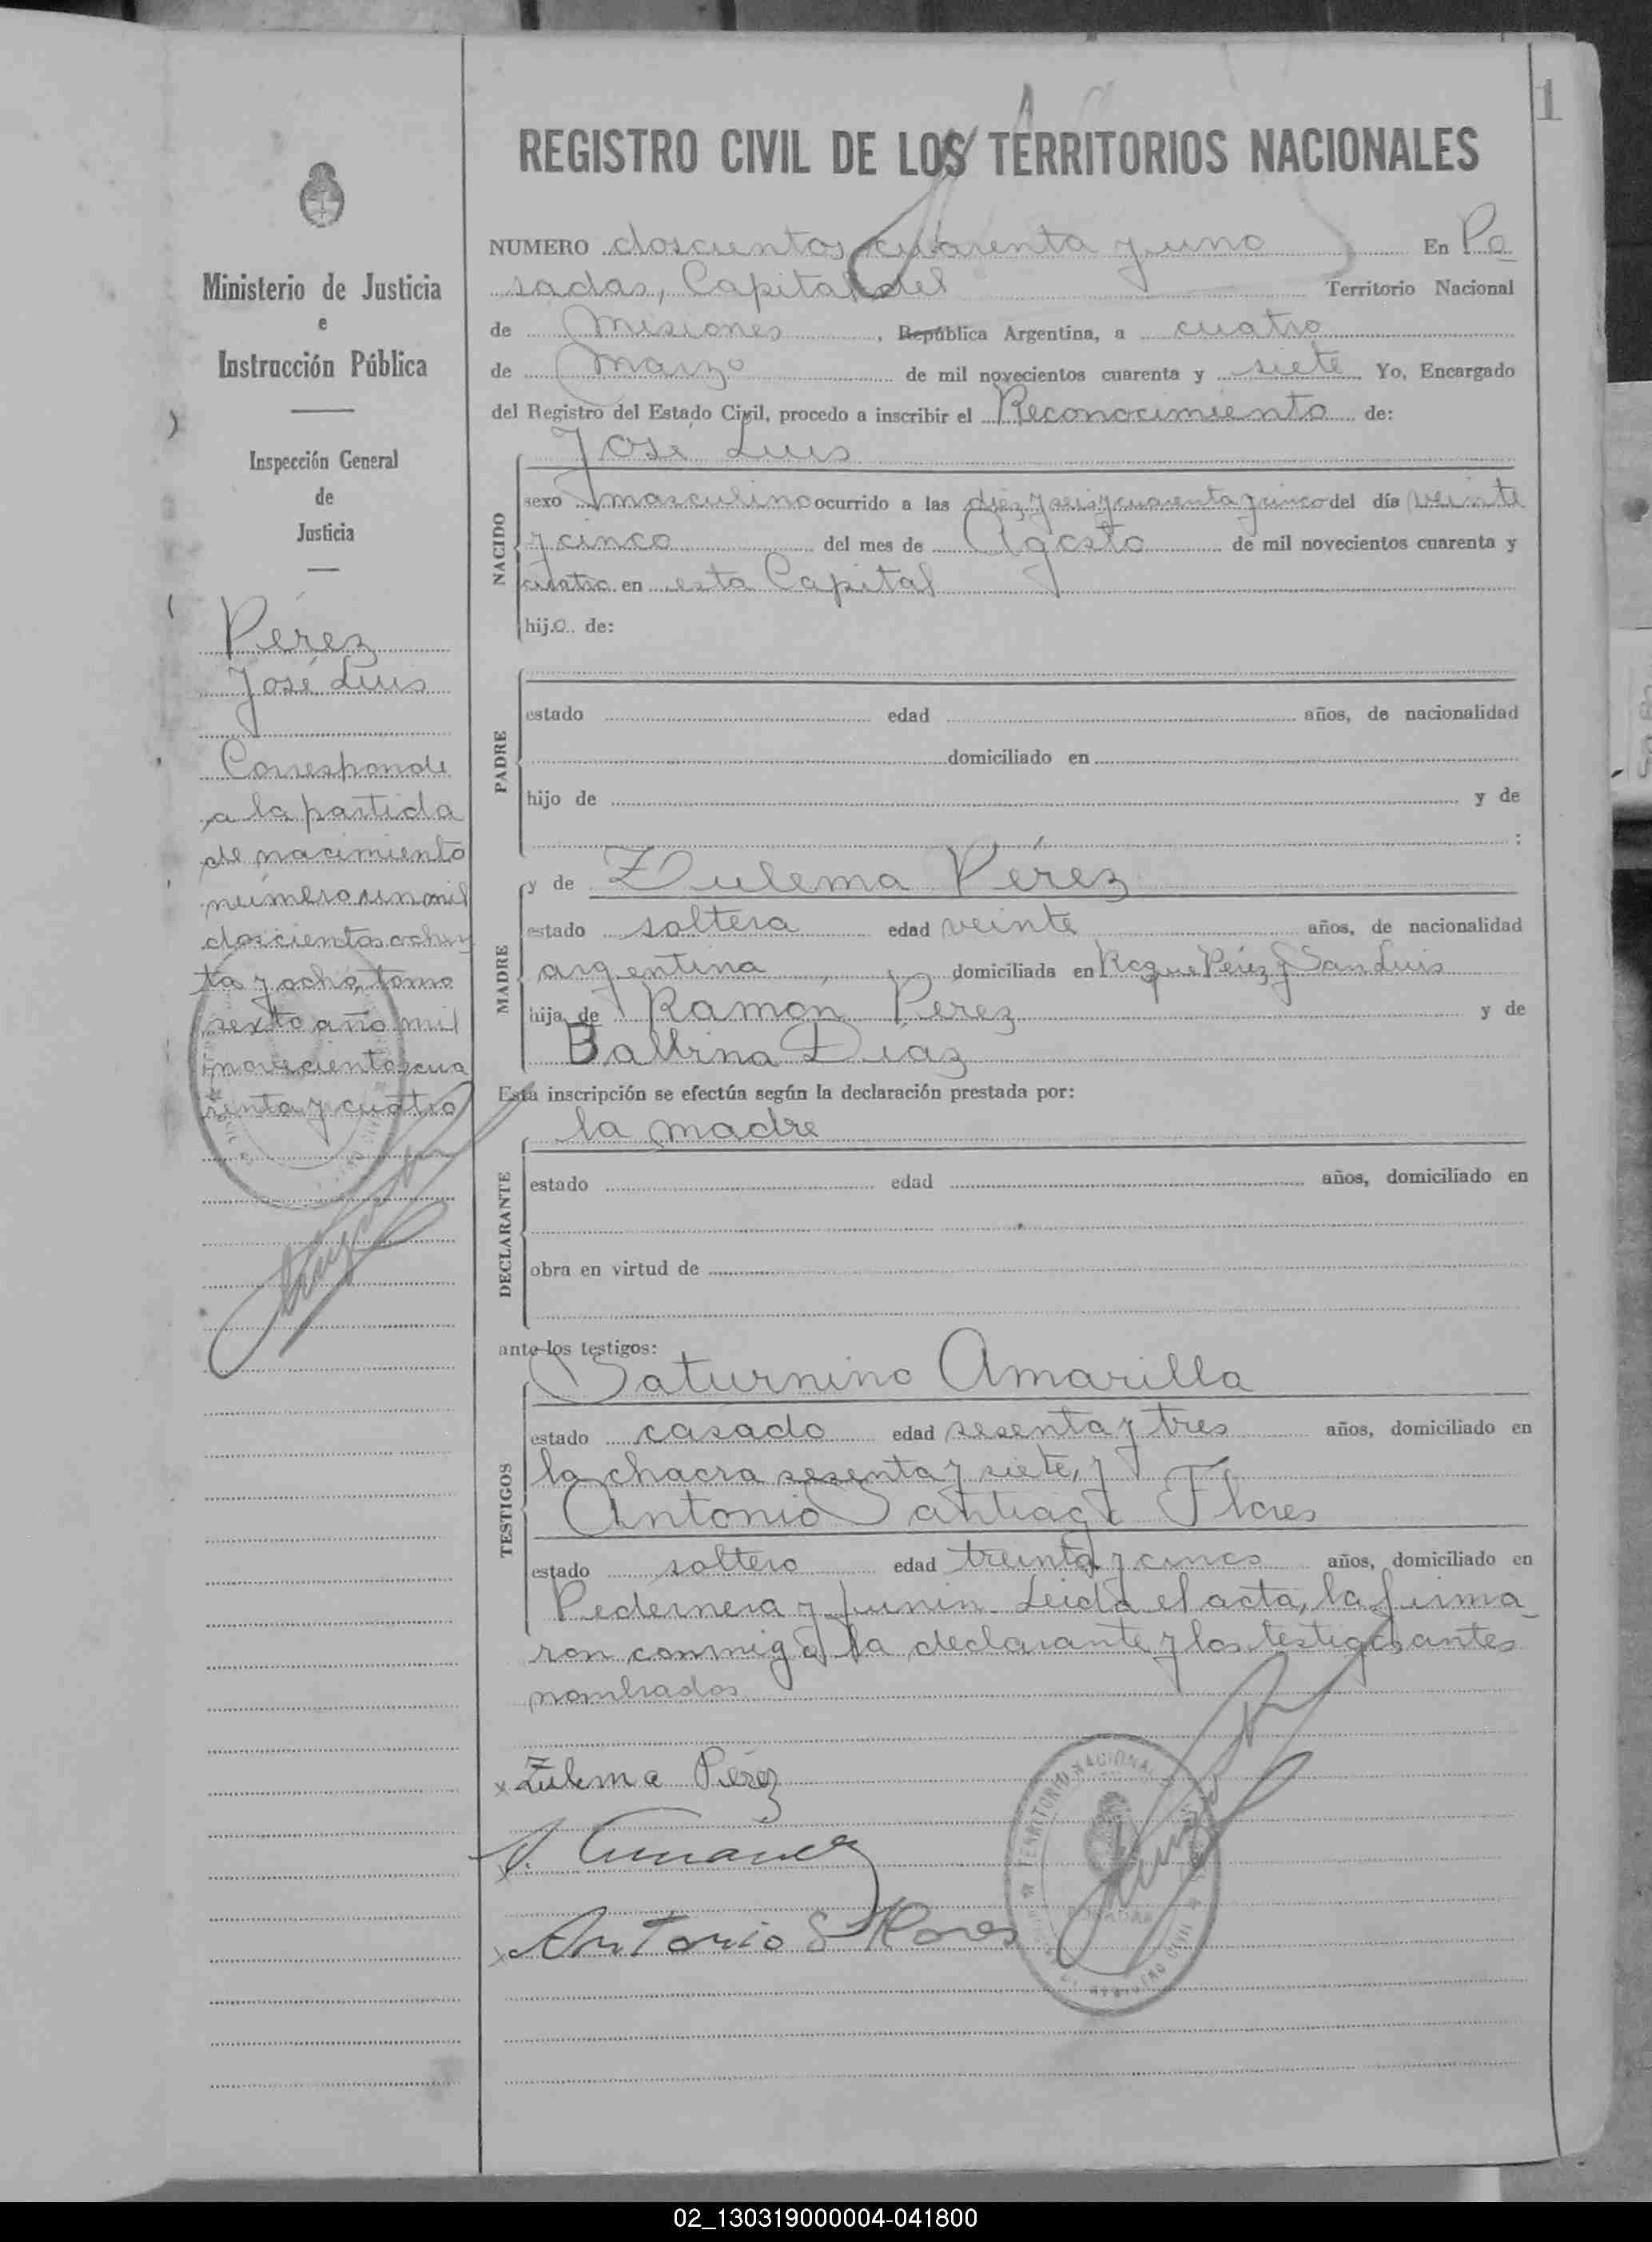 1
REGISTRO CIVIL DE LOS TERRITORIOS NACIONALES
NUMERO doscientos cuarenta y uno En Po
sadas, Capital del Territorio Nacional
de Misiones, República Argentina, a cuatro
de Marzo de mil novecientos cuarenta y siete Yo, Encargado
del Registro del Estado Civil, procedo a inscribir el Reconocimiento de:
José Luis
NACIDO
sexo masculino ocurrido a las diez y seis y cuarenta y cinco del día veinte
y cinco del mes de Agosto de mil novecientos cuarenta y
cuatro en esta Capital
hijo de:
PADRE
estado edad años, de nacionalidad
domiciliado en
hijo de y de
;
MADRE
y de Zulema Pérez
estado soltera edad veinte años, de nacionalidad
argentina, domiciliada en Roque Pérez y San Luis
hija de Ramón Pérez y de
Balbina Díaz
Esta inscripción se efectúa según la declaración prestada por:
la madre
DECLARANTE
estado edad años, domiciliado en
obra en virtud de
ante los testigos:
TESTIGOS
Saturnino Amarilla
estado casado edad sesenta y tres años, domiciliado en
la chacra sesenta y siete, y
Antonio Santiago Flores
estado soltero edad treinta y cinco años, domiciliado en
Pedernera y Junin. Leida el acta, la firma_
ron conmigo la declarante y los testigos antes
nombrados
x Zulema Pérez
x Antonio S Flores
TERRITORIO NACIONAL
REGISTRO CIVIL
POSADAS
Ministerio de Justicia
e
Instrucción Pública
Inspección General
de
Justicia
Pérez
José Luis
Corresponde
a la partida
de nacimiento
número un mil
doscientos ochen
ta y ocho, tomo
sexto año mil
novecientos cua
renta y cuatro
02_130319000004-041800